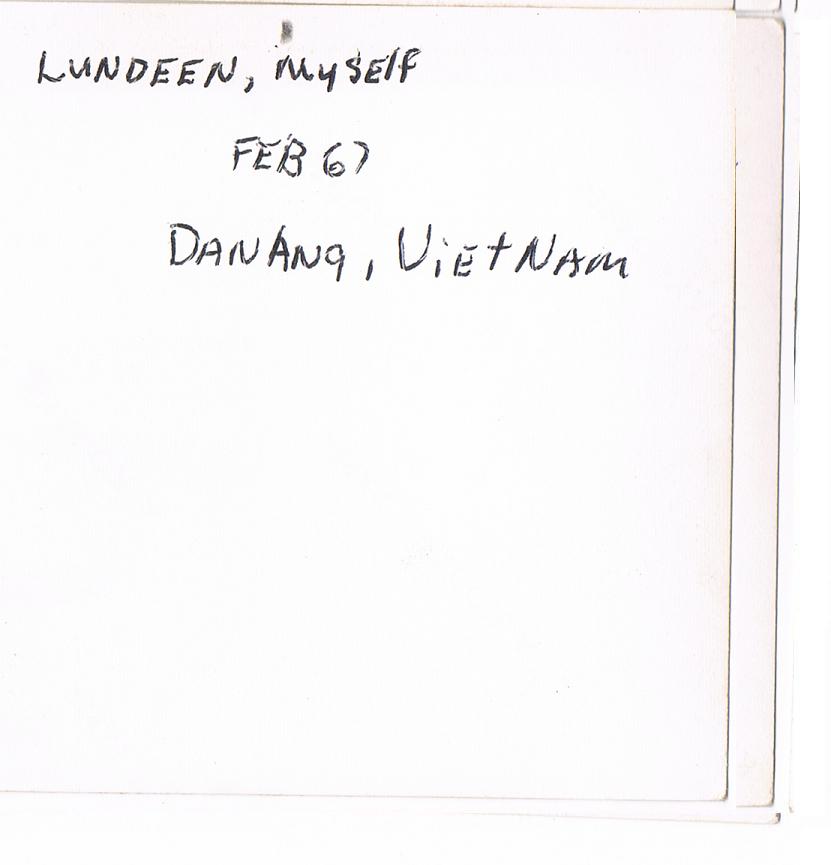 LUNDEEN, MySElf
FEB 67
DANANg, ViEtNAM